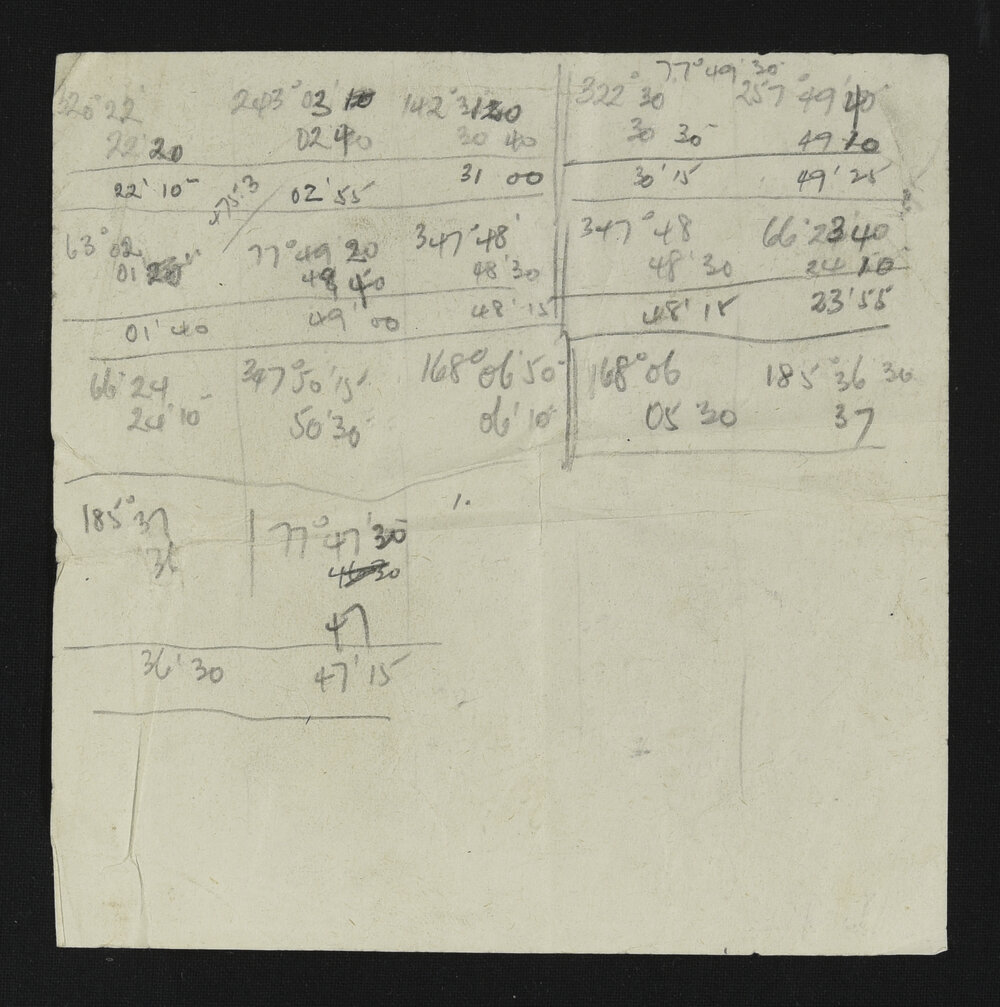 77°49'30
320°22' 243°03 10 142°31'20 322°30' 257°49'40
22'20 02 40 30 40 30 30 49 10
22'10 02'55 31 00 30'15 49'25
63°02 77°49'20 347°48' 347°48 66°23'40
01 20 48 40 48'30 48'30 24 10
01'40 49'00 48'15 48'15 23'55
66°24 347°50'15 168°06'50 168°06 185°36 30
24'10 50'30 06'10 05 30 37
185°37 77°47'30
36
47
36'30 47'15